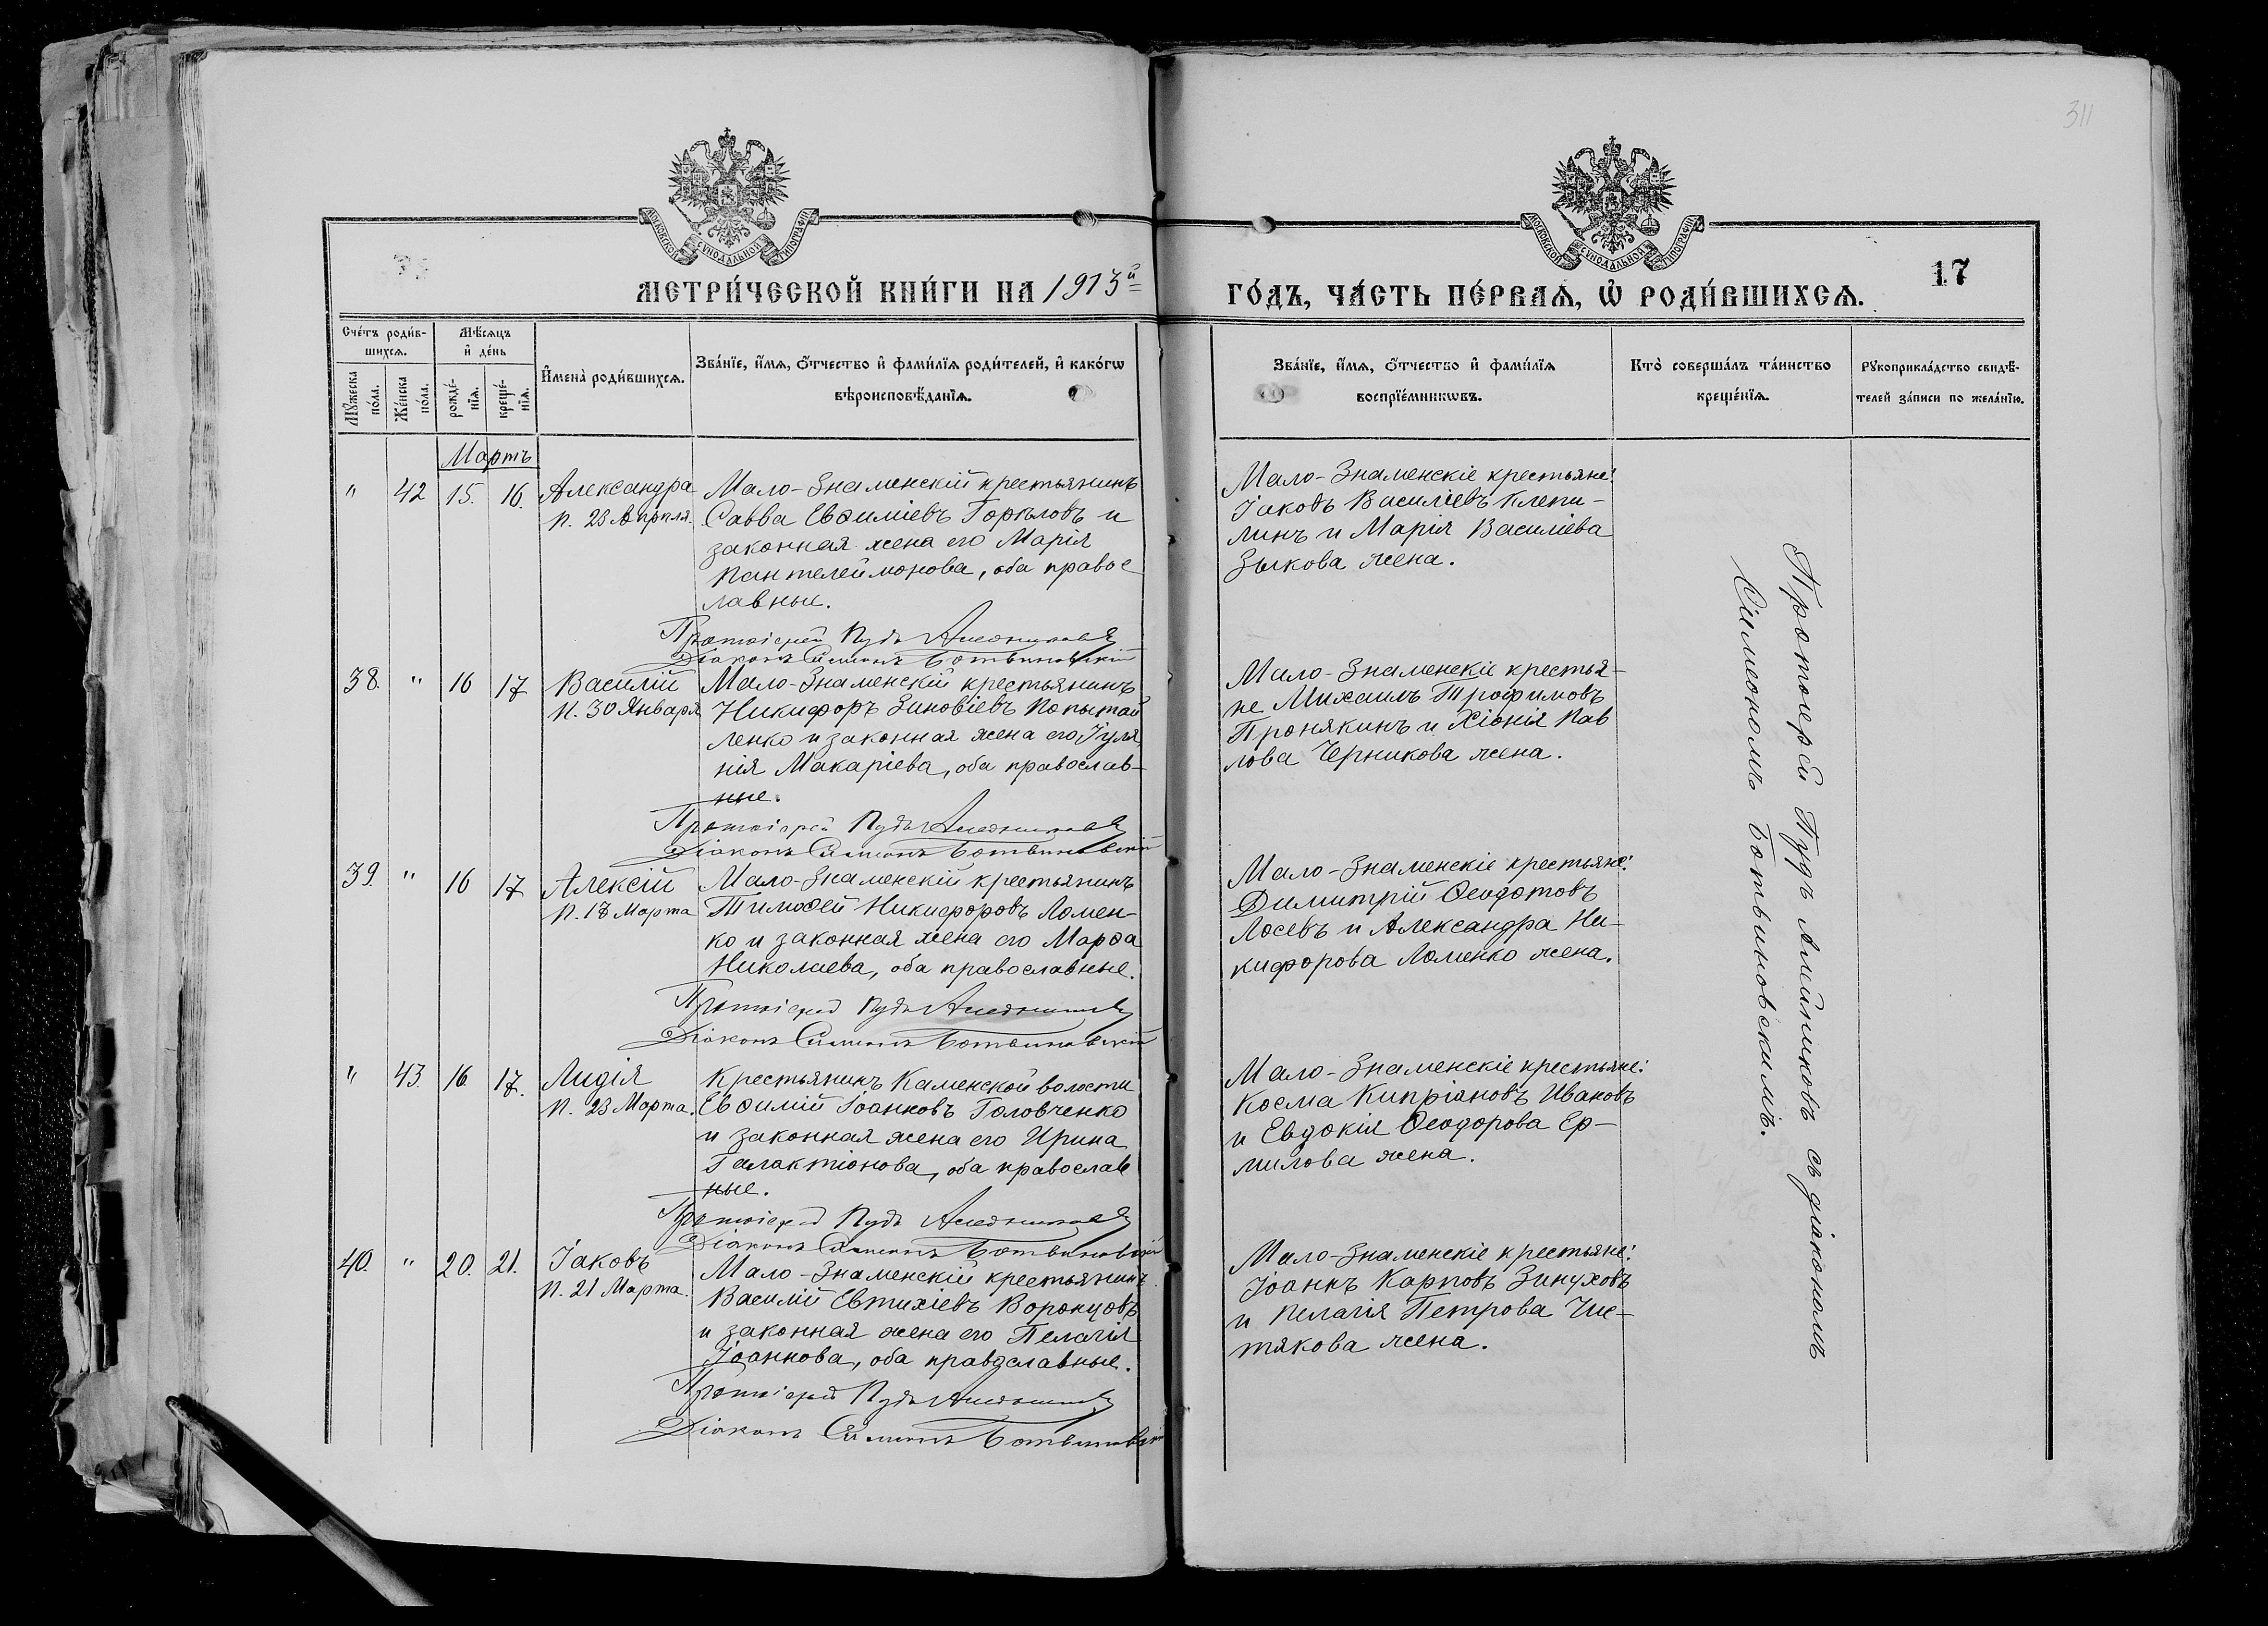 311
МОСКОВСКОЙ СѴНОДАЛЬНОЙ ТИПОГРАФІИ
МОСКОВСКОЙ СѴНОДАЛЬНОЙ ТИПОГРАФІИ
МЕТРИ́ЧЕСКОЙ КНИ́ГИ НА 1913й
ГО́ДЪ, ЧА́СТЬ ПЕ́РВАѦ, Ѡ҆ РОДИ́ВШИХСѦ.
17
Сче́тъ роди́в-
шихсѧ.
Мꙋ́жеска по́ла.
Же́нска по́ла.
Мѣ́сѧцъ
и҆ де́нь
рожде́-
нїѧ.
креще́-
нїѧ.
И҆мена̀ роди́вшихсѧ.
Зва́нїе, и҆́мѧ, ѻ҆́тчество и҆ фами́лїѧ роди́телей, и҆ како́гѡ
вѣроисповѣ́данїѧ.
Зва́нїе, и҆́мѧ, ѻ҆́тчество и҆ фами́лїѧ
воспрїе́мникѡвъ.
Кто̀ соверша́лъ та́инство
креще́нїѧ.
Рꙋкоприкла́дство свидѣ́-
телей за́писи по жела́нїю.
Мартъ
" 42 15. 16. Александра
п. 23 Апрѣля.
Мало-Знаменскій крестьянинъ
Савва Евѳиміевъ Горѣловъ и
законная жена его Марія
Пантелеймонова, оба правос
лавные.
Протоіерей Пудъ Алейниковъ
Діаконъ Симеонъ Ботвиновскій
Мало-Знаменскіе крестьяне:
Іаковъ Василіевъ Клепи-
линъ и Марія Василіева
Зыкова жена.
38. " 16 17 Василій
п. 30 Января
Мало-Знаменскій крестьянинъ
Никифоръ Зиновіевъ Копытай
ленко и законная жена его Іуля
нія Макаріева, оба православ-
ные.
Протоіерей Пудъ Алейниковъ
Діаконъ Симеонъ Ботвиновскій
Мало-Знаменскіе крестья-
не Михаилъ Трофимовъ
Пронякинъ и Хіонія Пав
лова Черникова жена.
39. " 16 17 Алексій
п. 17 Марта
Мало-Знаменскій крестьянинъ
Тимоѳей Никифоровъ Ломен-
ко и законная жена его Марѳа
Николаева, оба православные.
Протоіерей Пудъ Алейниковъ
Діаконъ Симеонъ Ботвиновскій
Мало-Знаменскіе крестьяне:
Димитрій Ѳеодотовъ
Лосевъ и Александра Ни-
кифорова Ломенко жена.
" 43. 16 17. Лидія
п. 23 Марта.
Крестьянинъ Каменской волости
Евѳимій Іоанновъ Головченко
и законная жена его Ирина
Галактіонова, оба православ
ные.
Протоіерей Пудъ Алейниковъ
Діаконъ Симеонъ Ботвиновскій
Мало-Знаменскіе крестьяне:
Косма Кипріановъ Ивановъ
и Евдокія Ѳеодорова Ер-
милова жена.
40. " 20. 21. Іаковъ
п. 21 Марта.
Мало-Знаменскій крестьянинъ
Василій Евтихіевъ Воронцовъ
и законная жена его Пелагія
Іоаннова, оба православные.
Протоіерей Пудъ Алейниковъ
Діаконъ Симеонъ Ботвиновскій
Мало-Знаменскіе крестьяне:
Іоаннъ Карповъ Зинуховъ
и Пелагія Петрова Чис-
тякова жена.
Протоіерей Пудъ Алейниковъ съ діакономъ
Симеономъ Ботвиновскимъ.